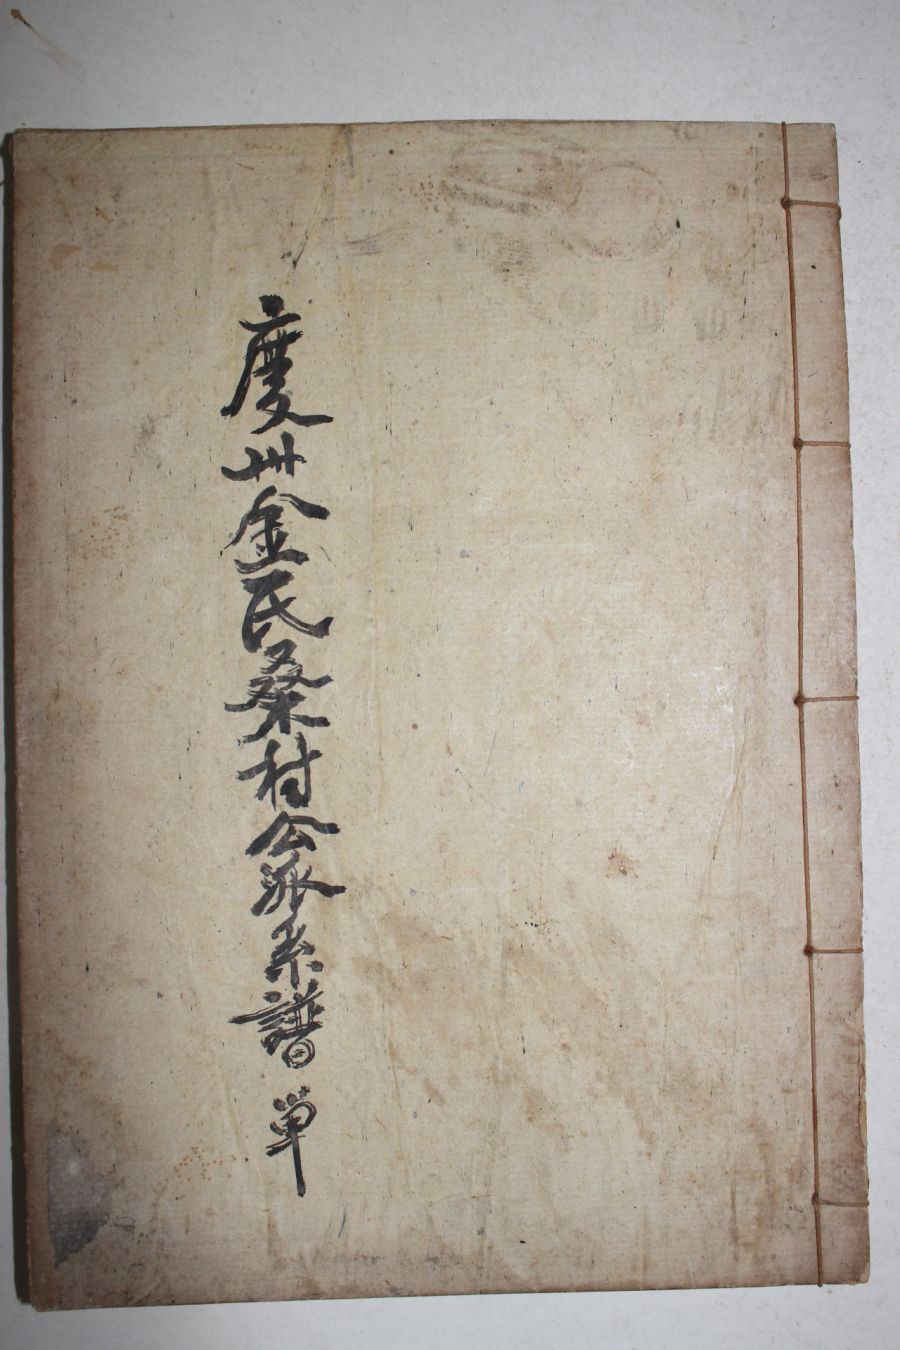 慶州金氏桑村公派系譜 單